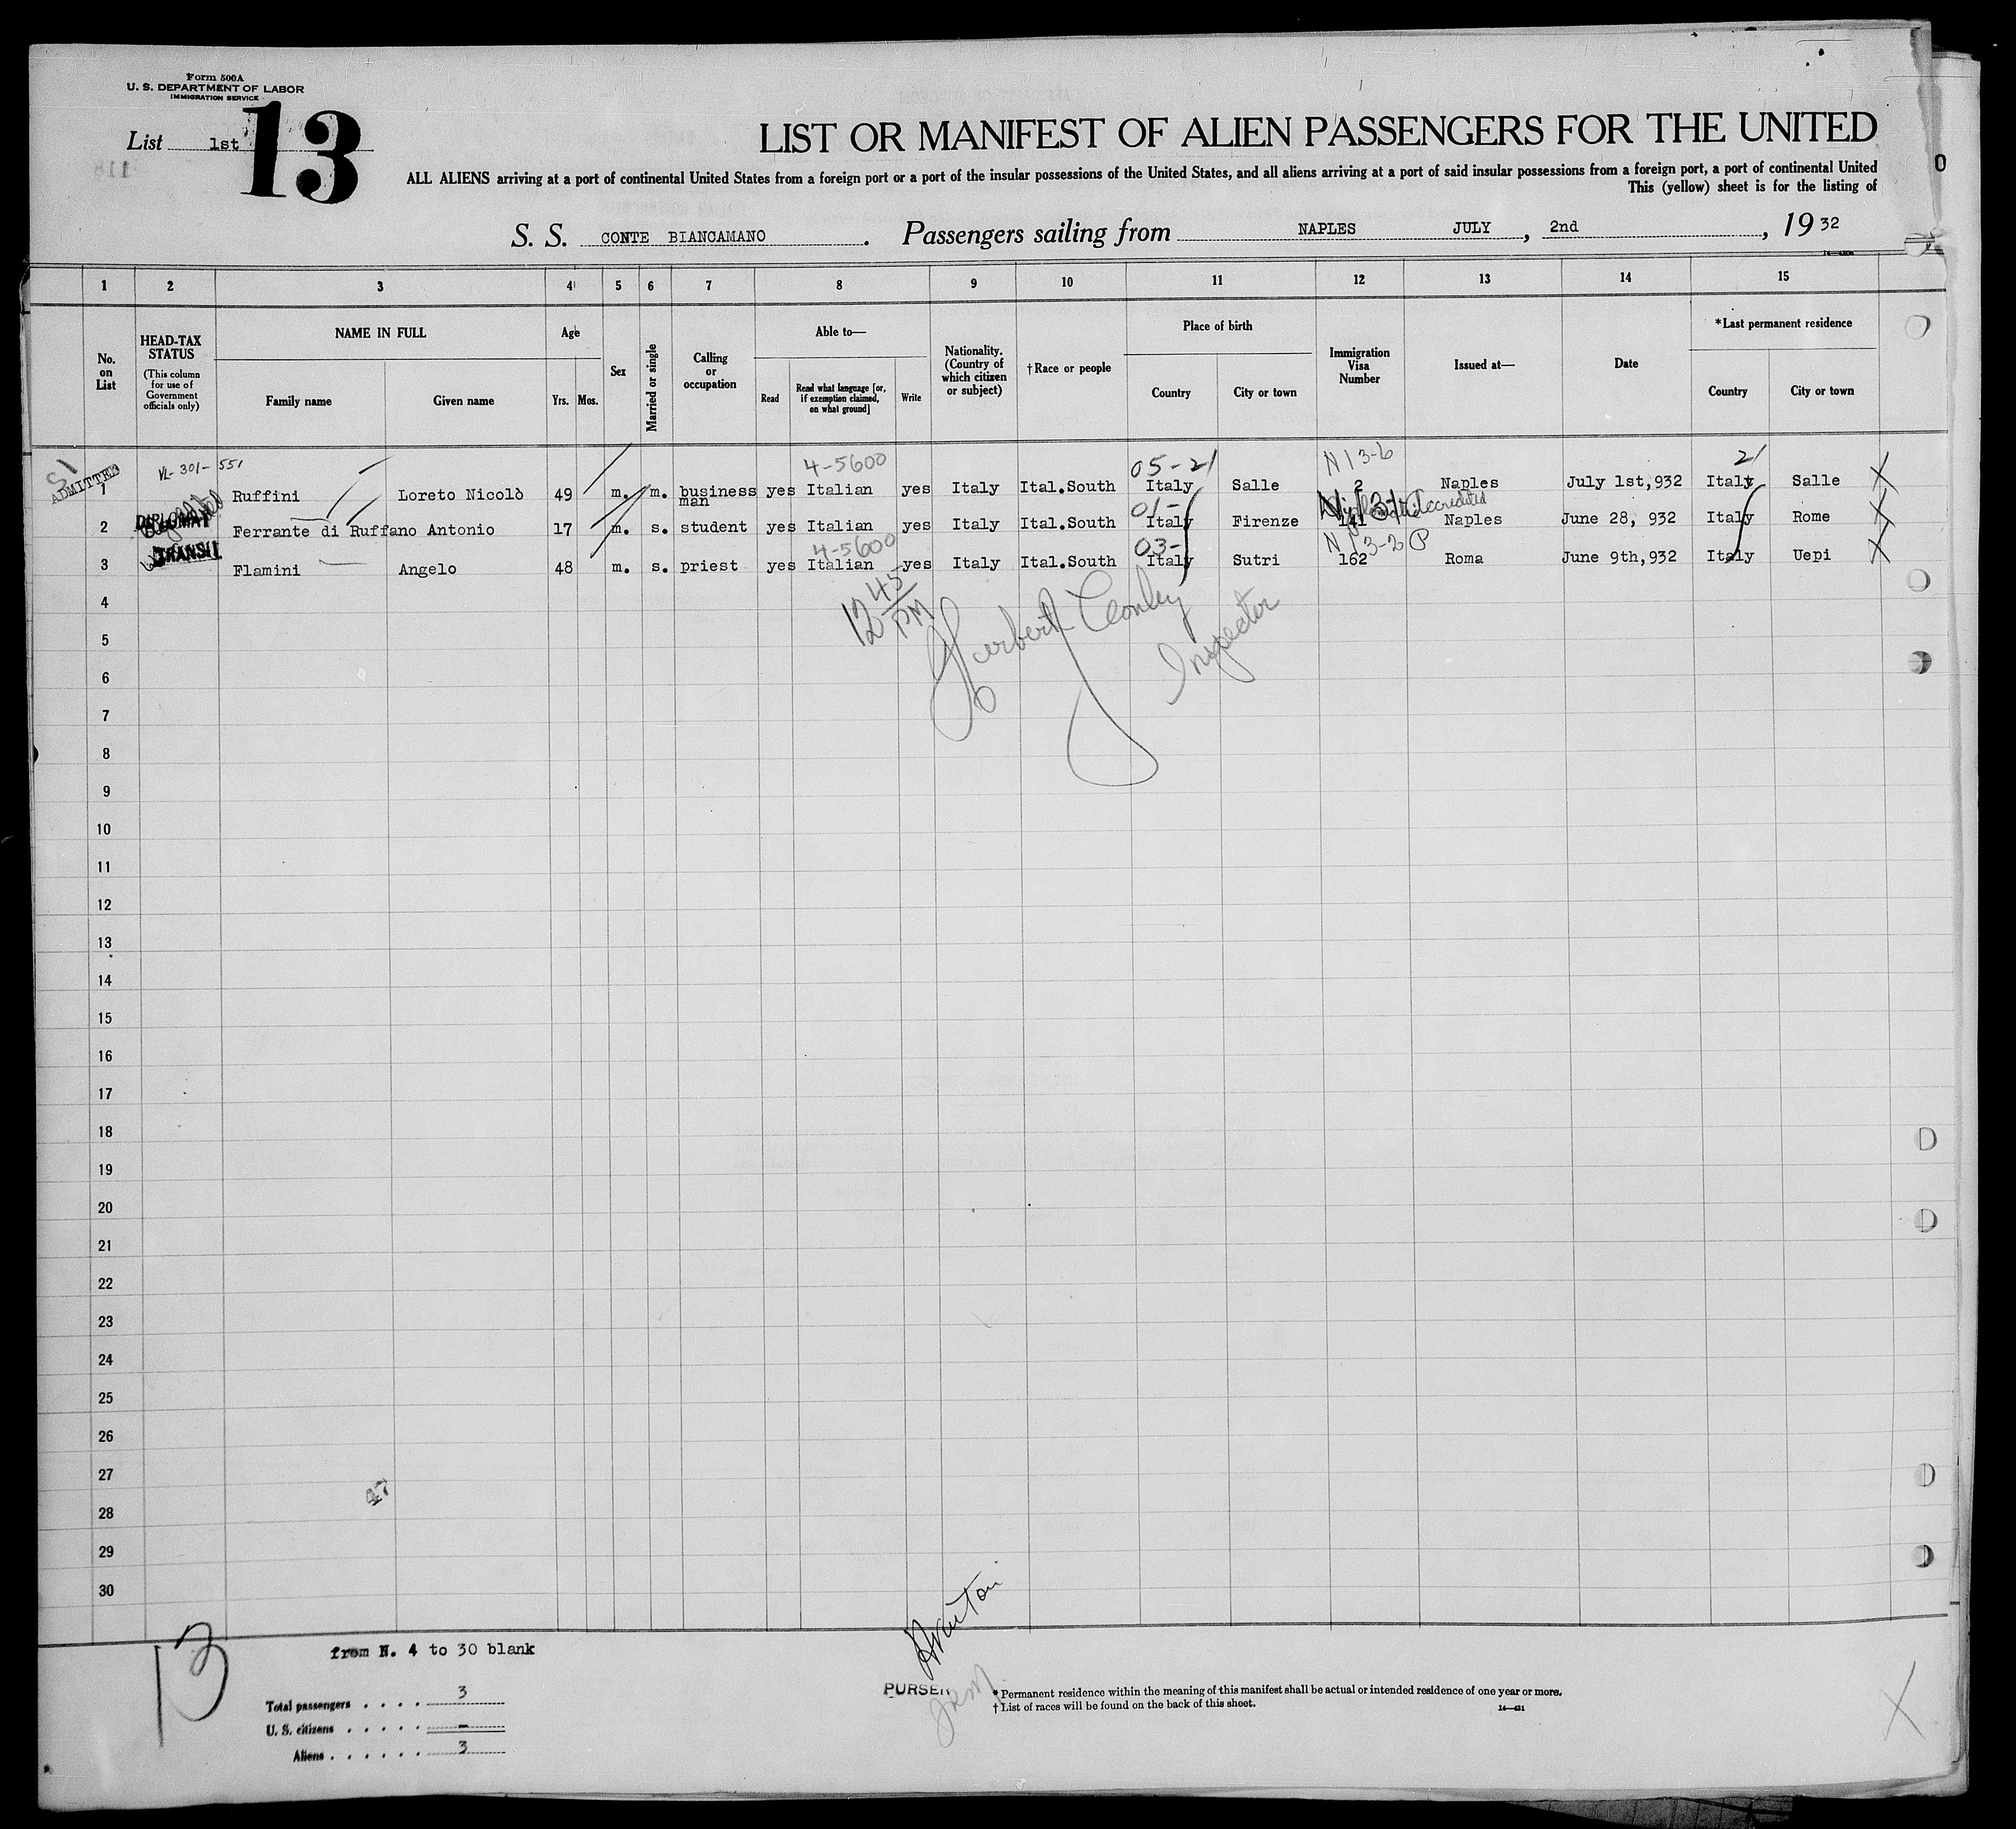 Form 500A
U. S. DEPARTMENT OF LABOR
IMMIGRATION SERVICE
List 1st
13
LIST OR MANIFEST OF ALIEN PASSENGERS FOR THE UNITED
ALL ALIENS arriving at a port of continental United States from a foreign port or a port of the insular possessions of the United States, and all aliens arriving at a port of said insular possessions from a foreign port, a port of continental United
This (yellow) sheet is for the listing of
S. S. CONTE BIANCAMANO. Passengers sailing from NAPLES JULY, 2nd, 1932
1 2 3 4 5 6 7 8 9 10 11 12 13 14 15
No. on List
HEAD-TAX STATUS
(This column for use of Government officials only)
NAME IN FULL
Family name
Given name
Age
Yrs. Mos.
Sex
Married or single
Calling or occupation
Able to—
Read
Read what language [or, if exemption claimed, on what ground]
Write
Nationality. (Country of which citizen or subject)
†Race or people
Place of birth
Country
City or town
Immigration Visa Number
Issued at—
Date
*Last permanent residence
Country
City or town
VL-301-551 4-5600 05-21 N13-6 21
ADMITTED
1 Ruffini Loreto Nicolò 49 m. m. business man yes Italian yes Italy Ital.South Italy Salle 2 Naples July 1st,932 Italy Salle X
01-
DIPLOMAT
2 Ferrante di Ruffano Antonio 17 m. s. student yes Italian yes Italy Ital.South Italy Firenze 141 Naples June 28, 932 Italy Rome X
4-5600 03- N 3-2 P
TRANSIT
3 Flamini Angelo 48 m. s. priest yes Italian yes Italy Ital.South Italy Sutri 162 Roma June 9th,932 Italy Uepi X
12 45 PM
Herbert Conley
Inspector
4
5
6
7
8
9
10
11
12
13
14
15
16
17
18
19
20
21
22
23
24
25
26
27
28
29
30
13
from N. 4 to 30 blank
Total passengers . . . . 3
U. S. citizens . . . . . –
Aliens . . . . . . 3
PURSER
*Permanent residence within the meaning of this manifest shall be actual or intended residence of one year or more.
†List of races will be found on the back of this sheet.
X